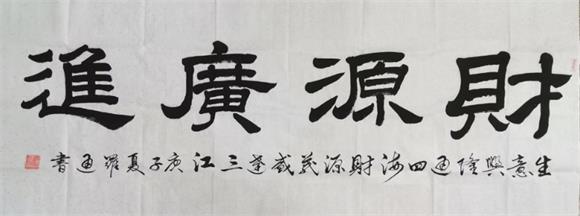 財源廣進
生意興隆通四海財源茂盛達三江庚子夏羅通書